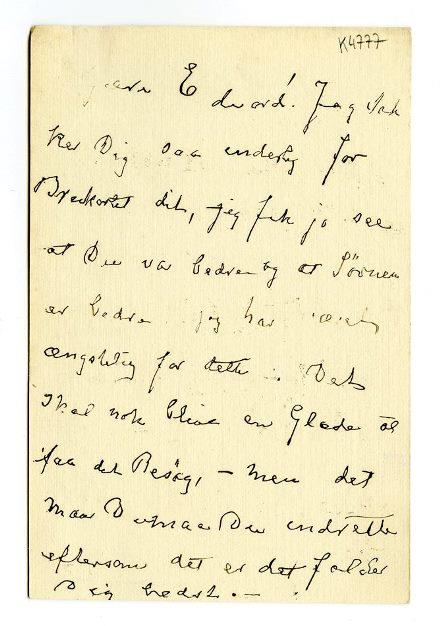 K4777
Kjære Edvard! Jeg tak
ker Dig saa inderlig for
Brevkortet dit, jeg fik jo see
at Du var bedre og at Søvnen
er bedre jeg har været
ængstelig for dette. Det
skal nok blive en Glæde at
faa det Besøg, – men det
maa Du maa Du indrette
eftersom det er det falder
Dig bedst. –